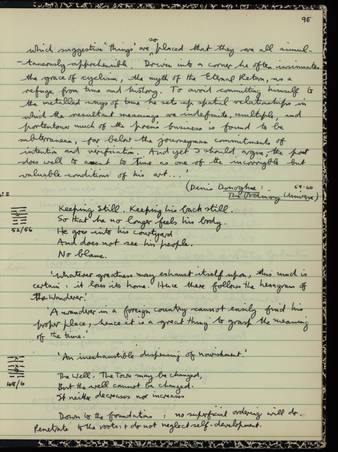 95
so
which suggestive 'things' are placed that they are all simul-
-taneously apprehensible. Driven into a corner he often insinuates
the grace of cyclism, the myth of the Eternal Return, as a
refuge from time and history. To avoid committing himself to
the metalled ways of time he sets up spatial relationships in
which the resultant meanings are indefinite, multiple, and
portentous much of the poem's business is found to be
subterranean, far below the journeyman commitments of
intention and verification. And yet I should argue, the poet
does well to assent to time as one of the incorrigible but
valuable conditions of his art...'
(Denis Donoghue:
The Ordinary Universe)
52/56
Keeping Still. Keeping his back still.
So that he no longer feels his body.
He goes into his courtyard
And does not see his people.
No blame.
'Whatever greatness may exhaust itself upon, this much is
certain: it loses its home. Hence there follows the hexagram of
the Wanderer.'
'A wanderer in a foreign country cannot easily find his
proper place, hence it is a great thing to grasp the meaning
of the time.'
'An inexhaustible dispensing of nourishment'
48/6
The Well. The Town may be changed,
But the well cannot be changed.
It neither decreases nor increases
Down to the foundations: no superficial ordering will do.
Penetrate to the roots & do not neglect self-development.